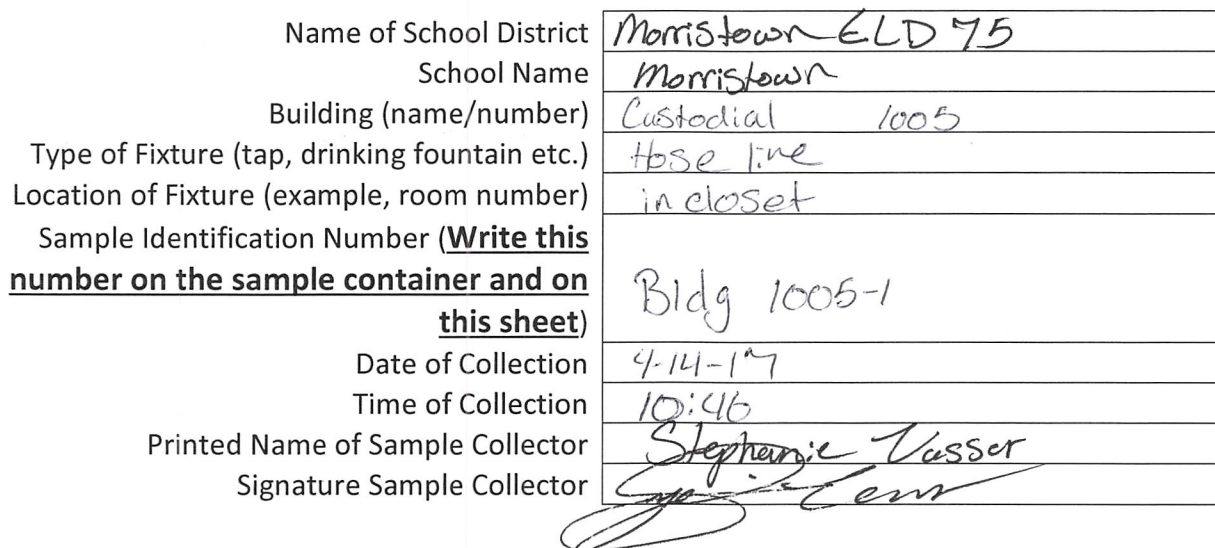 Name of School District Morristown ELD 75
School Name Morristown
Building (name/number) Custodial 1005
Type of Fixture (tap, drinking fountain etc.) Hose line
Location of Fixture (example, room number) in closet
Sample Identification Number (Write this
number on the sample container and on
this sheet) Bldg 1005-1
Date of Collection 4-14-17
Time of Collection 10:46
Printed Name of Sample Collector Stephanie Vasser
Signature Sample Collector